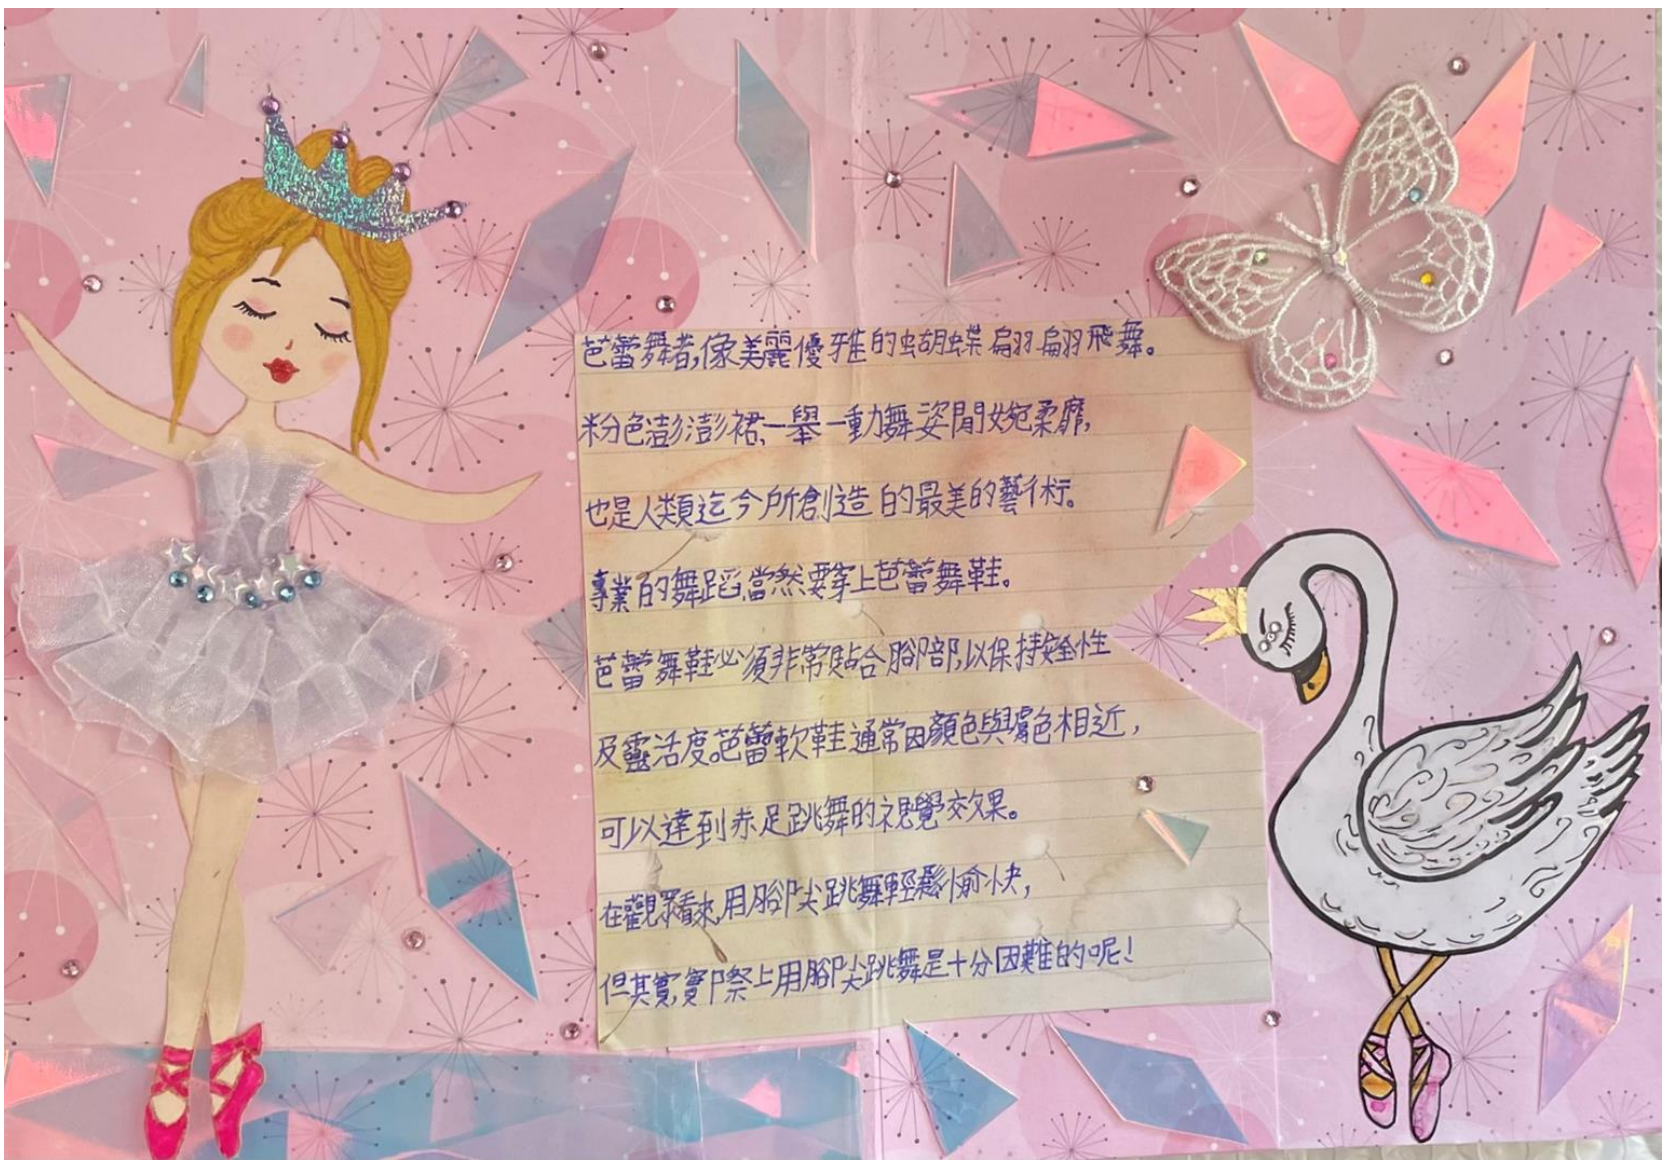 芭蕾舞者,像美麗優雅的蝴蝶翩翩飛舞。
粉色澎澎裙,一舉一動舞姿閒婉柔靡,
也是人類迄今所創造的最美的藝術。
專業的舞蹈,當然要穿上芭蕾舞鞋。
芭蕾舞鞋必須非常貼合腳部,以保持安全性
及靈活度。芭蕾軟鞋通常因顏色與膚色相近,
可以達到赤足跳舞的視覺效果。
在觀眾看來,用腳尖跳舞輕鬆愉快,
但其實,實際上用腳尖跳舞是十分困難的呢!